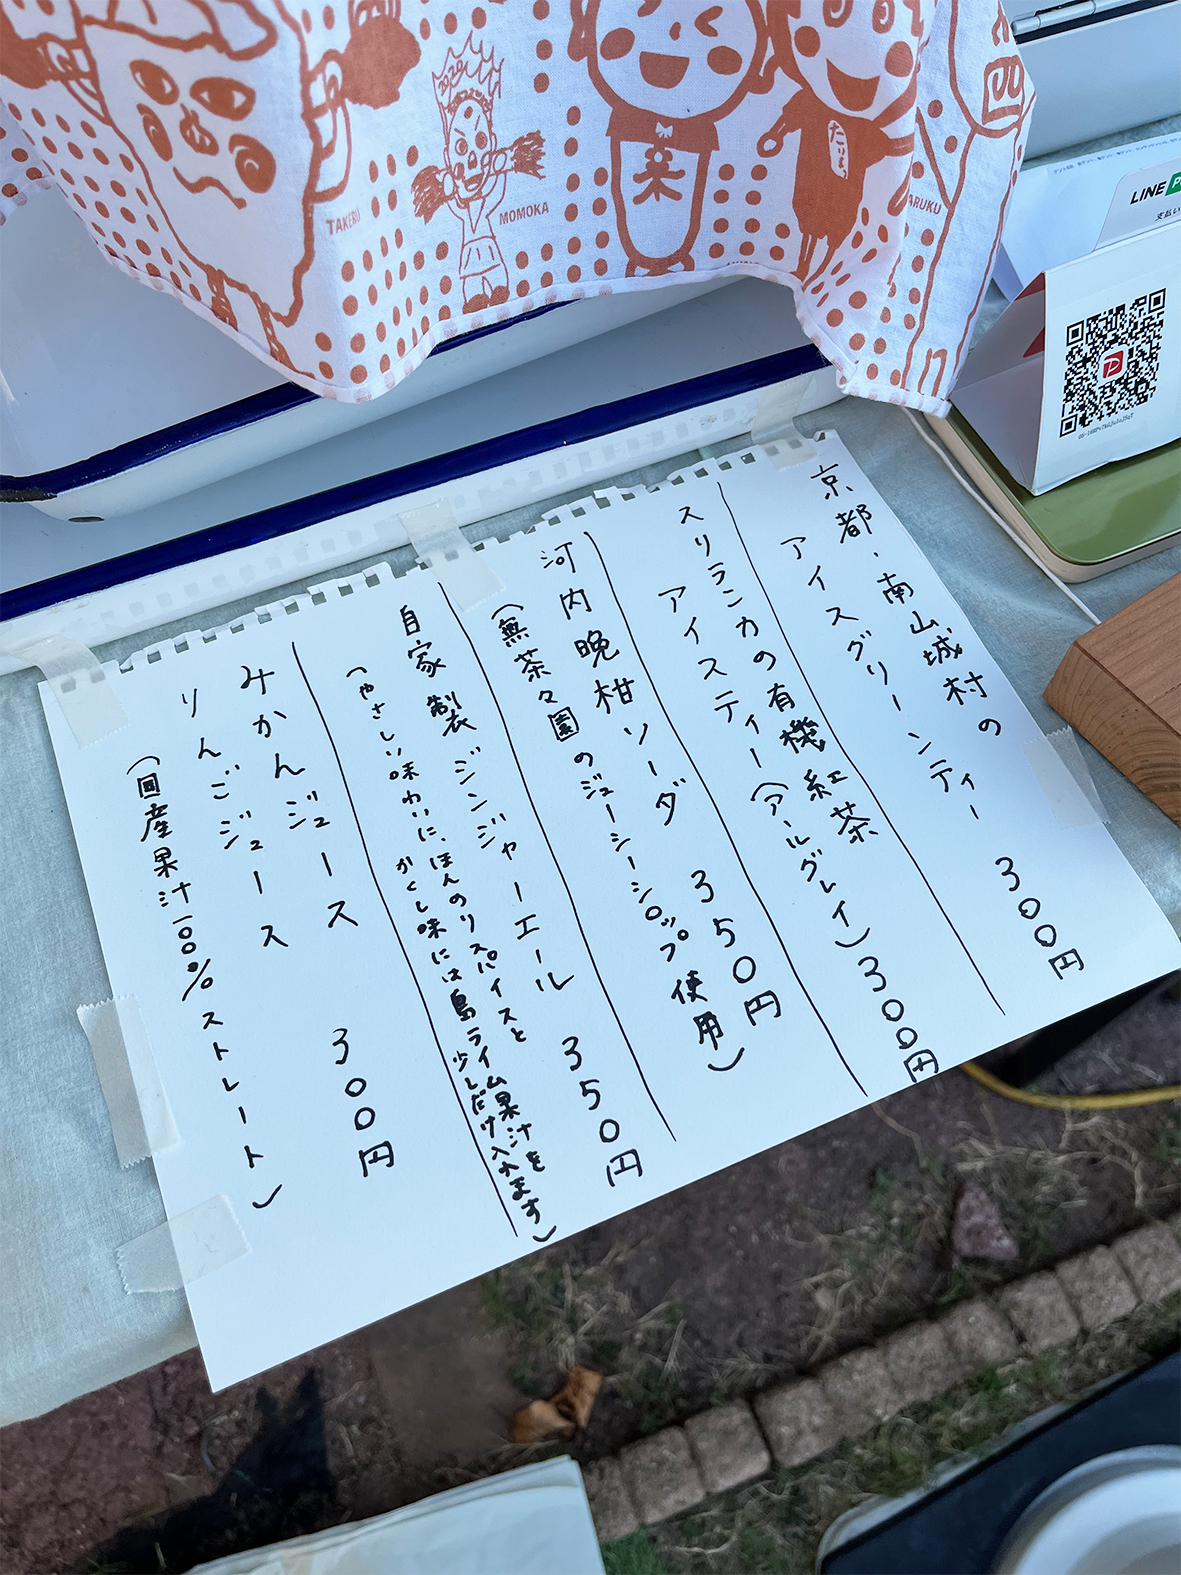 2020
TAKERU
MOMOKA
楽
たりも
ARUKU
LINE
支払い
京都・南山城村の
アイスグリーンティー 300円
スリランカの有機紅茶
アイスティー(アールグレイ)300円
河内晩柑ソーダ 350円
(無茶々園のジューシーシロップ使用)
自家製ジンジャーエール 350円
(やさしい味わいに、ほんのりスパイスと
かくし味には島ライム果汁を
少しだけ入れます)
みかんジュース 300円
りんごジュース
(国産果汁100%ストレート)